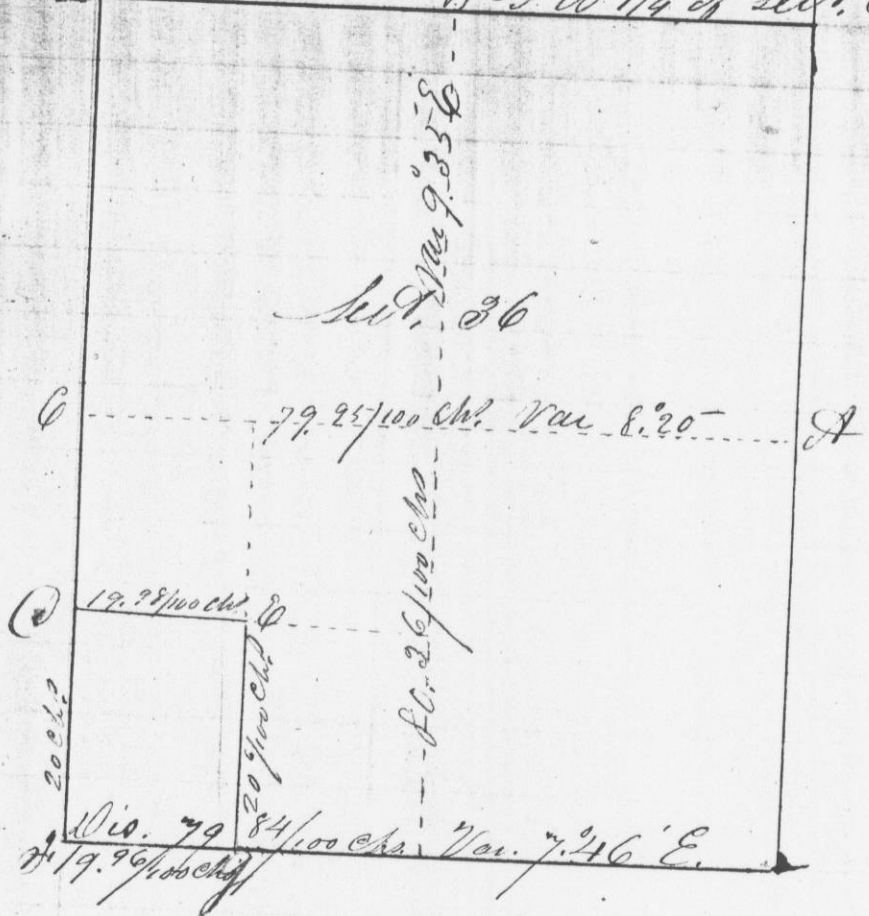 S.W 1/4 of Sect.
Var 9.°35 E
Sect. 36
C
79.95/100 Chs. Var 8.°20
A
80.36/100 Chs
19.98/100 Chs. E
20 Chs.
20 6/100 Chs.
Dis. 79 84/100 Chs. Var. 7.°46' E.
19.96/100 Chs